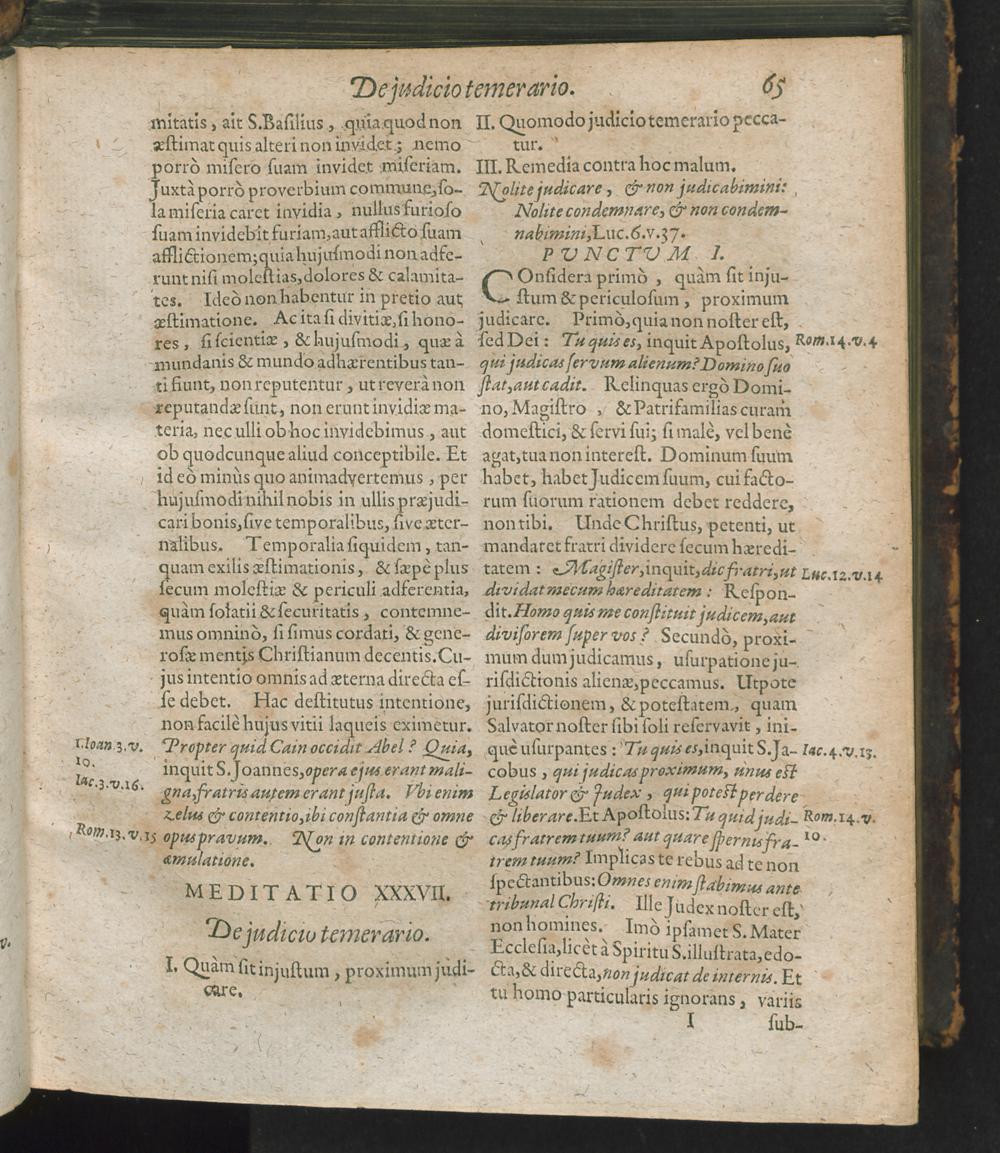 De judicio temerario. 65
mitatis, ait S. Basilius, quia quod non
æstimat quis alteri non invidet; nemo
porrò misero suam invidet miseriam.
Juxtà porrò proverbium commune, so-
la miseria caret invidia, nullus furioso
suam invidebit furiam, aut afflicto suam
afflictionem; quia hujusmodi non adfe-
runt nisi molestias, dolores & calamita-
tes. Ideò non habentur in pretio aut
æstimatione. Ac ita si divitiæ, si hono-
res, si scientiæ, & hujusmodi, quæ à
mundanis & mundo adhærentibus tan-
ti fiunt, non reputentur, ut reverà non
reputandæ sunt, non erunt invidiæ ma-
teria, nec ulli ob hoc invidebimus, aut
ob quodcunque aliud conceptibile. Et
id eò minùs quo animadvertemus, per
hujusmodi nihil nobis in ullis præjudi-
cari bonis, sive temporalibus, sive æter-
nalibus. Temporalia siquidem, tan-
quam exilis æstimationis, & sæpè plus
secum molestiæ & periculi adferentia,
quàm solatii & securitatis, contemne-
mus omninò, si simus cordati, & gene-
rosæ mentis Christianum decentis. Cu-
jus intentio omnis ad æterna directa es-
se debet. Hac destitutus intentione,
non facilè hujus vitii laqueis eximetur.
1. Ioan. 3. v. 10.
Propter quid Cain occidit Abel? Quia,
inquit S. Joannes, opera ejus erant mali-
Iac. 3. v. 16.
gna, fratris autem erant justa. Vbi enim
zelus & contentio, ibi constantia & omne
Rom. 13. v. 15
opus pravum. Non in contentione &
æmulatione.
MEDITATIO XXXVII.
De judicio temerario.
I. Quàm sit injustum, proximum judi-
care.
II. Quomodo judicio temerario pecca-
tur.
III. Remedia contra hoc malum.
Nolite judicare, & non judicabimini:
Nolite condemnare, & non condem-
nabimini, Luc. 6. v. 37.
PVNCTVM I.
COnsidera primò, quàm sit inju-
stum & periculosum, proximum
judicare. Primò, quia non noster est,
sed Dei: Tu quis es, inquit Apostolus,
Rom. 14. v. 4
qui judicas servum alienum? Domino suo
stat, aut cadit. Relinquas ergò Domi-
no, Magistro, & Patrifamilias curam
domestici, & servi sui; si malè, vel benè
agat, tua non interest. Dominum suum
habet, habet Judicem suum, cui facto-
rum suorum rationem debet reddere,
non tibi. Unde Christus, petenti, ut
mandaret fratri dividere secum hæredi-
tatem: Magister, inquit, dic fratri, ut
Luc. 12. v. 14
dividat mecum hæreditatem: Respon-
dit. Homo quis me constituit judicem, aut
divisorem super vos? Secundò, proxi-
mum dum judicamus, usurpatione ju-
risdictionis alienæ, peccamus. Utpote
jurisdictionem, & potestatem, quam
Salvator noster sibi soli reservavit, ini-
què usurpantes: Tu quis es, inquit S. Ja-
Iac. 4. v. 13.
cobus, qui judicas proximum, unus est
Legislator & Judex, qui potest perdere
& liberare. Et Apostolus: Tu quid judi-
Rom. 14. v. 10.
cas fratrem tuum? aut quare spernis fra-
trem tuum? Implicas te rebus ad te non
spectantibus: Omnes enim stabimus ante
tribunal Christi. Ille Judex noster est,
non homines. Imò ipsamet S. Mater
Ecclesia, licèt à Spiritu S. illustrata, edo-
cta, & directa, non judicat de internis. Et
tu homo particularis ignorans, variis
I sub-